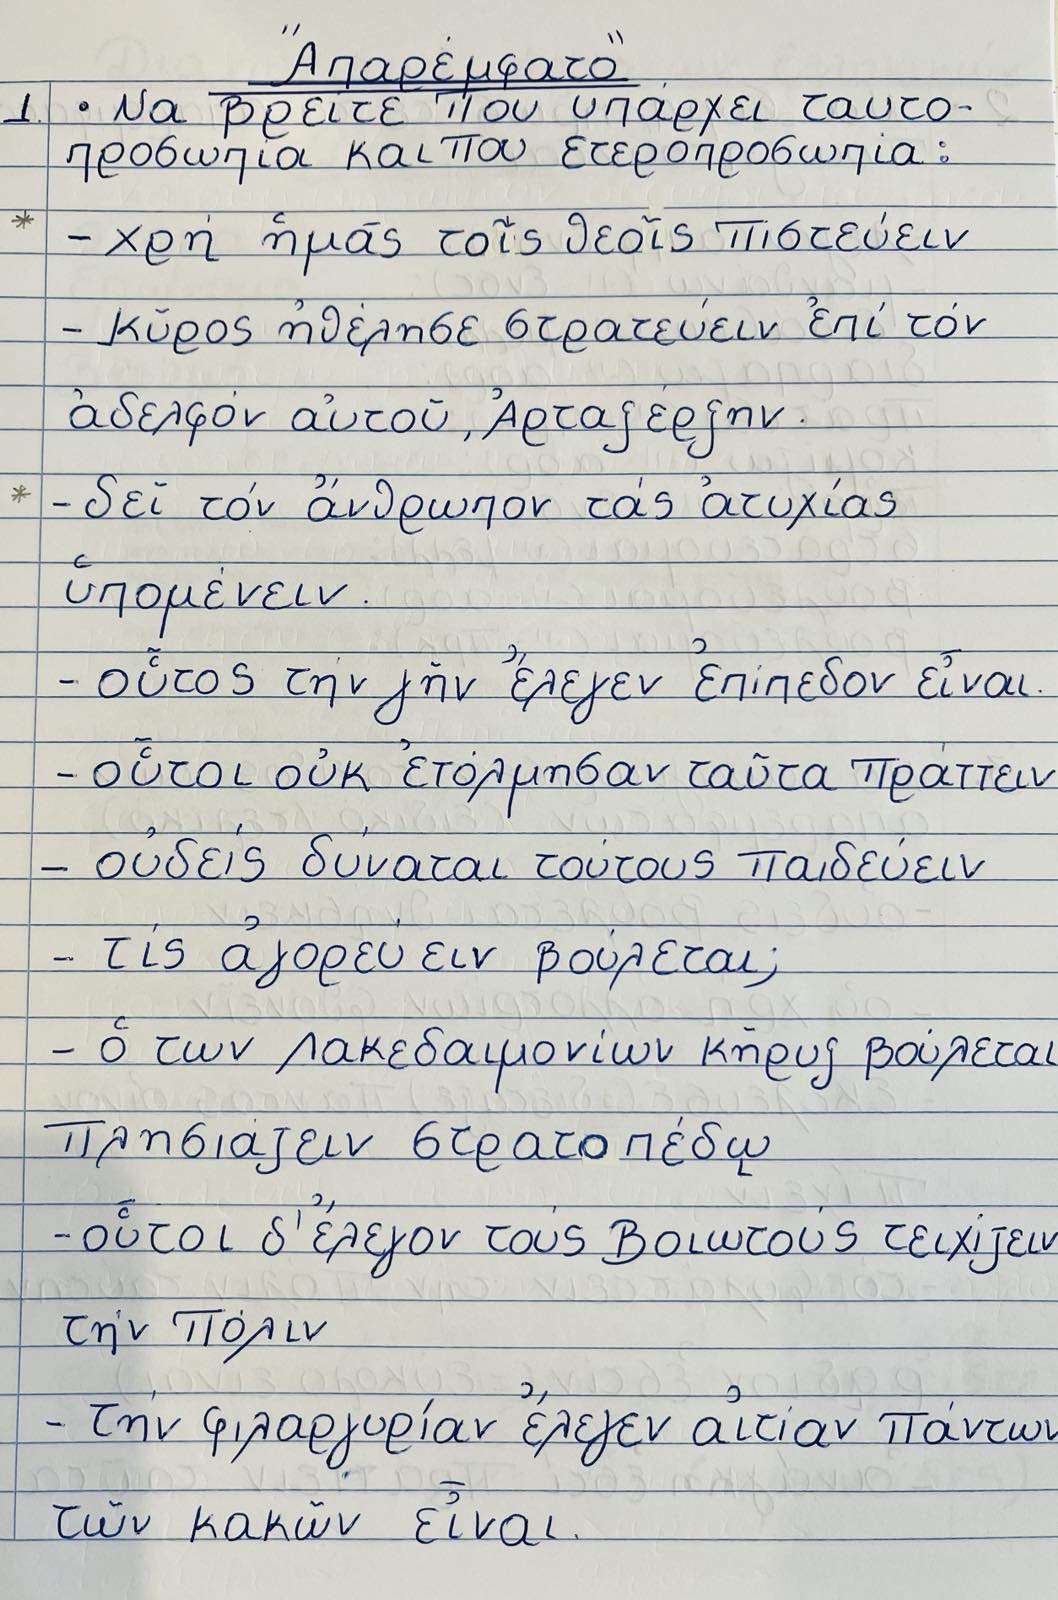 "Απαρέμφατο"
1. • Να βρείτε που υπάρχει ταυτο-
προσωπία και που ετεροπροσωπία:
* - χρή ἡμᾶς τοῖς θεοῖς πιστεύειν
- Κῦρος ἠθέλησε στρατεύειν ἐπί τόν
ἀδελφόν αὐτοῦ, Ἀρταξέρξην.
* - δεῖ τόν ἄνθρωπον τάς ἀτυχίας
ὑπομένειν.
- οὗτος τήν γῆν ἔλεγεν ἐπίπεδον εἶναι.
- οὗτοι οὐκ ἐτόλμησαν ταῦτα πράττειν
- οὐδείς δύναται τούτους παιδεύειν
- τίς ἀγορεύειν βούλεται;
- ὁ των Λακεδαιμονίων κῆρυξ βούλεται
πλησιάζειν στρατοπέδῳ
- οὗτοι δ' ἔλεγον τούς Βοιωτούς τειχίζειν
τήν πόλιν
- τήν φιλαργυρίαν ἔλεγεν αἰτίαν πάντων
τῶν κακῶν εἶναι.